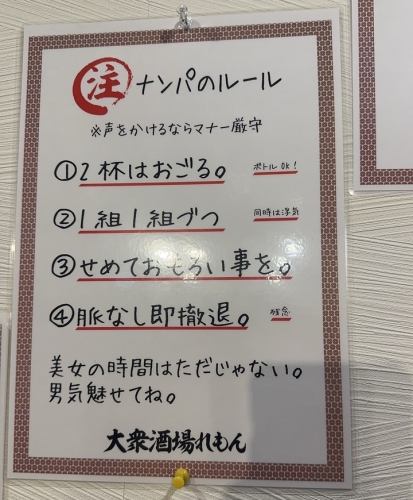 注 ナンパのルール
※声をかけるならマナー厳守
①2杯はおごる。 ボトルOK!
②1組1組づつ 同時は浮気
③せめておもろい事を。
④脈なし即撤退。 残念
美女の時間はただじゃない。
男気魅せてね。
大衆酒場れもん